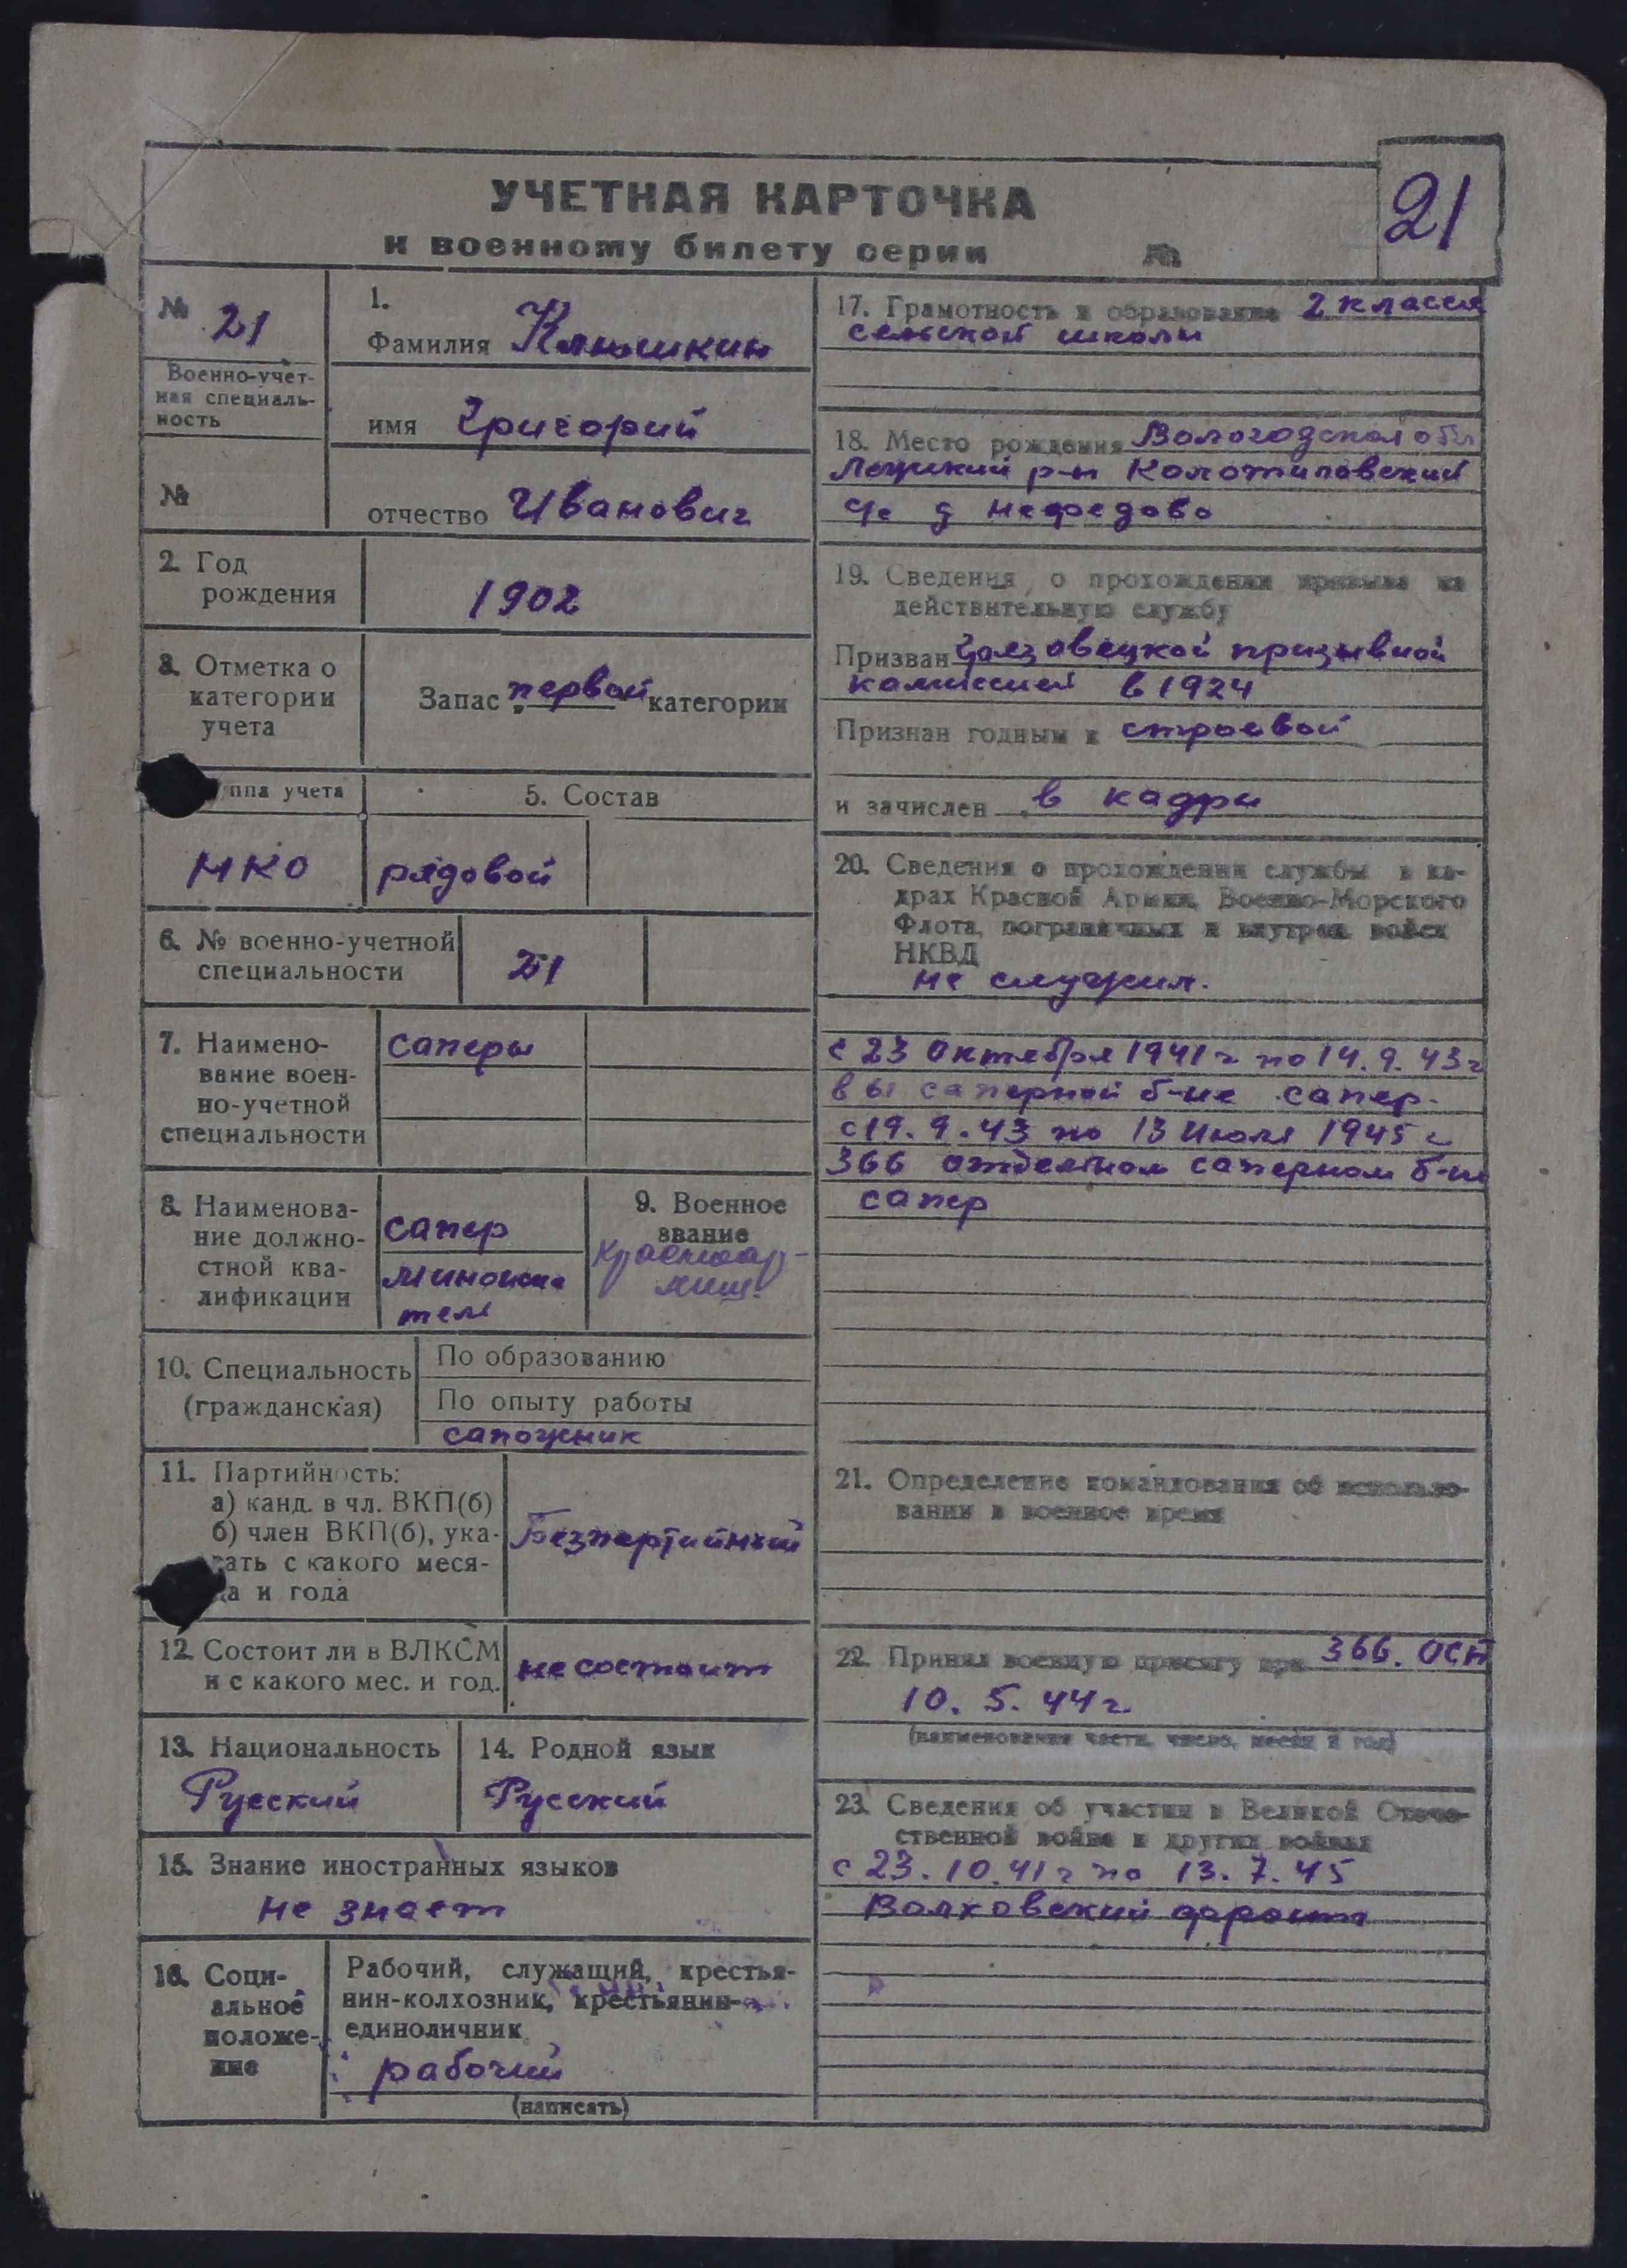 УЧЕТНАЯ КАРТОЧКА
к военному билету серии №
21
№ 21
Военно-учет-
ная специаль-
ность
№
1.
Фамилия Клюшкин
имя Григорий
отчество Иванович
2. Год
рождения
1902
3. Отметка о
категории
учета
Запас „первой“ категории
уппа учета
5. Состав
НКО
рядовой
6. № военно-учетной
специальности
21
7. Наимено-
вание воен-
но-учетной
специальности
саперы
8. Наименова-
ние должно-
стной ква-
лификации
сапер
тель
9. Военное
звание
красноар-
меец
10. Специальность
(гражданская)
По образованию
По опыту работы
сапожник
11. Партийность:
а) канд. в чл. ВКП(б)
б) член ВКП(б), ука-
зать с какого меся-
ца и года
Безпартийный
12. Состоит ли в ВЛКСМ
и с какого мес. и год.
не состоит
13. Национальность
Русский
14. Родной язык
Русский
15. Знание иностранных языков
не знает
16. Соци-
альное
положе-
ние
Рабочий, служащий, крестья-
нин-колхозник, крестьянин-
единоличник
рабочий
(написать)
17. Грамотность и образование 2 класса
сельской школы
18. Место рождения Вологодской обл
р-н
с/с д Нефедово
19. Сведения о прохождении призыва на
действительную службу
Призван Грязовецкой призывной
комиссией в 1924
Признан годным к строевой
и зачислен в кадры
20. Сведения о прохождении службы в ка-
драх Красной Армии, Военно-Морского
Флота, пограничных и внутрен. войск
НКВД
не служил.
с 23 октября 1941 г по 14.9.43 г
в 61 саперной б-не сапер.
с 19.9.43 по 13 июля 1945 г
366 отдельном саперном б-не
сапер
21. Определение командования об использо-
вании в военное время
22. Принял военную присягу при 366. ОСБ
10.5.44 г.
(наименование части, число, месяц и год)
23. Сведения об участии в Великой Отече-
ственной войне и других войнах
с 23.10.41 г по 13.7.45
Волховский фронт